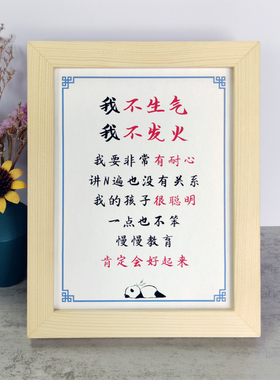 我不生气
我不发火
我要非常有耐心
讲N遍也没有关系
我的孩子很聪明
一点也不笨
慢慢教育
肯定会好起来